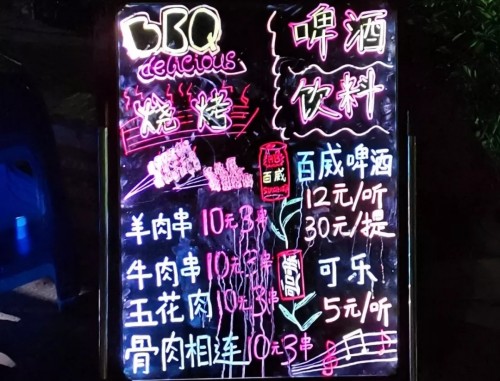 BBQ
delicious
烧烤
羊肉串 10元3串
牛肉串 10元3串
玉花肉 10元3串
骨肉相连 10元3串
啤酒
饮料
百威
百威啤酒
12元/听
30元/提
可乐
5元/听